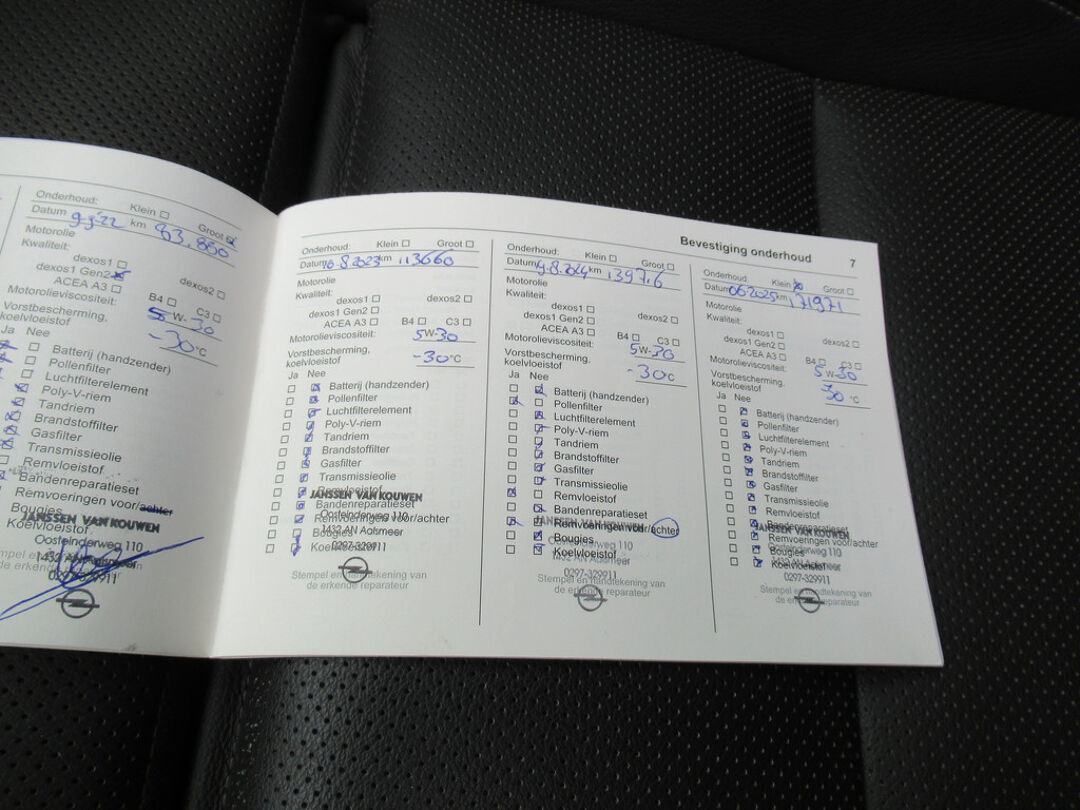 Onderhoud: Klein Groot
Datum 9-9-22 km 83.850
Motorolie
Kwaliteit:
dexos1 dexos2
dexos1 Gen2
ACEA A3 B4 C3
Motorolieviscositeit: 5 W-30
Vorstbescherming,
koelvloeistof -30 °C
Ja Nee
Batterij (handzender)
Pollenfilter
Luchtfilterelement
Poly-V-riem
Tandriem
Brandstoffilter
Gasfilter
Transmissieolie
Remvloeistof
Bandenreparatieset
Remvoeringen voor/achter
Bougies
Koelvloeistof
JANSSEN VAN KOUWEN
Oosteinderweg 110
1432 AN Aalsmeer
0297-329911
Stempel en
de erkende reparateur
Bevestiging onderhoud 7
Onderhoud: Klein Groot
Datum 8.2023 km 113660
Motorolie
Kwaliteit:
dexos1 dexos2
dexos1 Gen2
ACEA A3 B4 C3
Motorolieviscositeit: 5W-30
Vorstbescherming,
koelvloeistof -30 °C
Ja Nee
Batterij (handzender)
Pollenfilter
Luchtfilterelement
Poly-V-riem
Tandriem
Brandstoffilter
Gasfilter
Transmissieolie
Remvloeistof
JANSSEN VAN KOUWEN
Bandenreparatieset
Oosteinderweg 110
Remvoeringen voor/achter
1432 AN Aalsmeer
Bougies
0297-329911
Koelvloeistof
Stempel en handtekening van
de erkende reparateur
Onderhoud: Klein Groot
Datum 8.2024 km
Motorolie
Kwaliteit:
dexos1 dexos2
dexos1 Gen2
ACEA A3 B4 C3
Motorolieviscositeit: 5W-30
Vorstbescherming,
koelvloeistof -30 °C
Ja Nee
Batterij (handzender)
Pollenfilter
Luchtfilterelement
Poly-V-riem
Tandriem
Brandstoffilter
Gasfilter
Transmissieolie
Remvloeistof
Bandenreparatieset
JANSSEN VAN KOUWEN
Remvoeringen voor/achter
Bougies
Oosteinderweg 110
Koelvloeistof
1432 AN Aalsmeer
0297-329911
Stempel en handtekening van
de erkende reparateur
Onderhoud Klein Groot
Datum 06 2025 km 171971
Motorolie
Kwaliteit:
dexos1 dexos2
dexos1 Gen2
ACEA A3 B4 C3
Motorolieviscositeit: 5 W-30
Vorstbescherming,
koelvloeistof 30 °C
Ja Nee
Batterij (handzender)
Pollenfilter
Luchtfilterelement
Poly-V-riem
Tandriem
Brandstoffilter
Gasfilter
Transmissieolie
Remvloeistof
Bandenreparatieset
JANSSEN VAN KOUWEN
Remvoeringen voor/achter
Bougies
Oosteinderweg 110
Koelvloeistof
1432 AN Aalsmeer
0297-329911
Stempel en handtekening van
de erkende reparateur